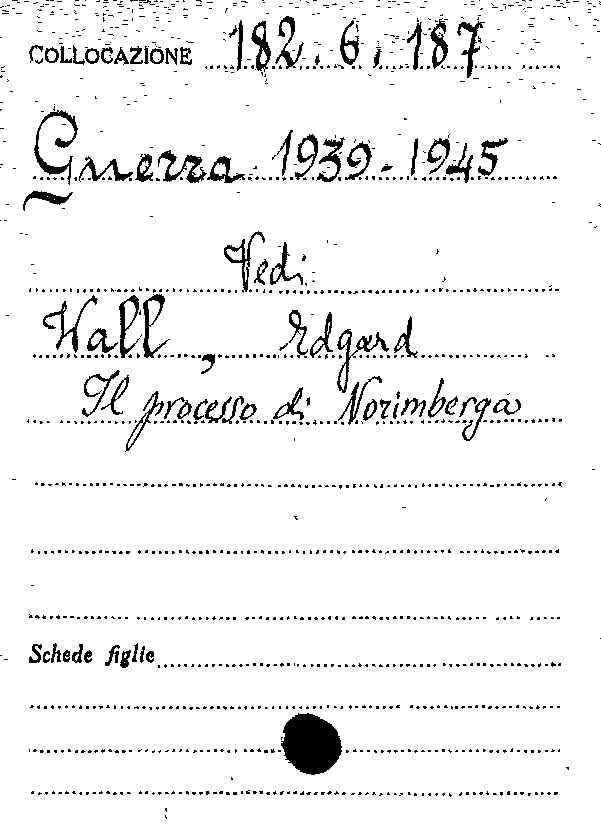 COLLOCAZIONE 182.6.187
Guerra 1939-1945
Vedi
Wall, Edgard
Il processo di Norimberga
Schede figlie